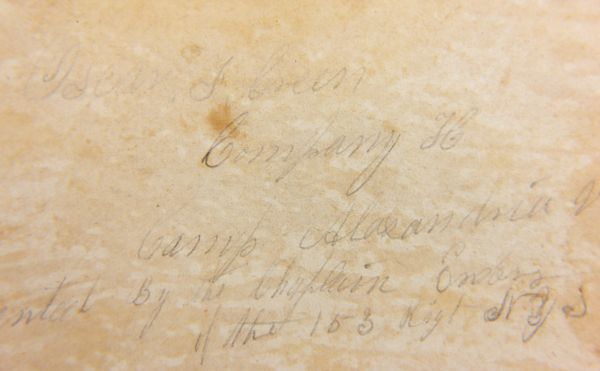 Oscar. F. Green
Company H
Camp Alaxandria V
ented by the Chaplin Enders
of the 153 Regt N Y S